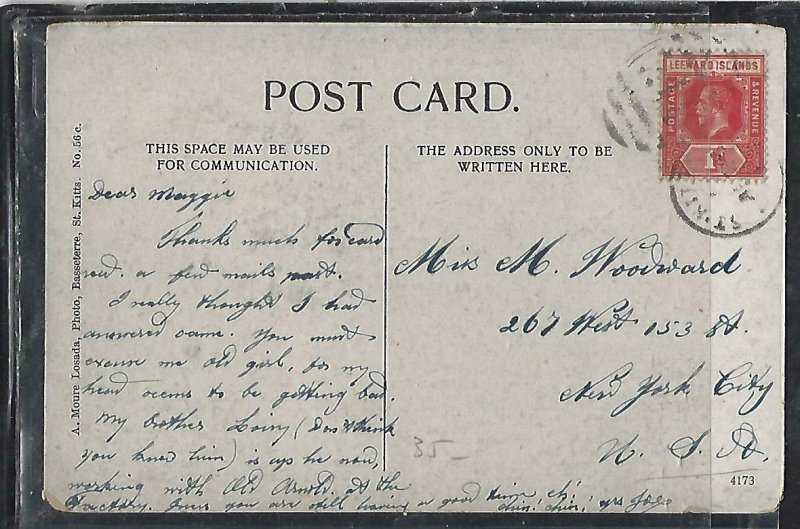 LEEWARD ISLANDS
POSTAGE
& REVENUE
1
ST. KITT
POST CARD.
THIS SPACE MAY BE USED
FOR COMMUNICATION.
THE ADDRESS ONLY TO BE
WRITTEN HERE.
A. Moure Losada, Photo, Basseterre, St. Kitts. No. 56 c.
Dear Maggie
Thanks much for card
recd. a few mails past.
I really thought I had
answered same. You must
excuse me old girl, for my
head seems to be getting bad.
My brother (Don't think
you knew him) is up he now,
working with Old Arnold. at the
Factory. you are still having a good time eh!
chin! chin! yrs Joe
Miss M. Woodward
267 West 153 St.
New York City
U. S. A.
35-
4173